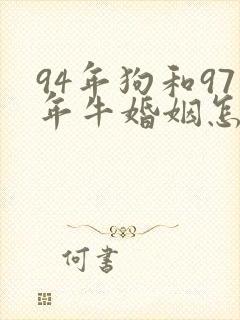 94年狗和97
年牛婚姻怎
何書